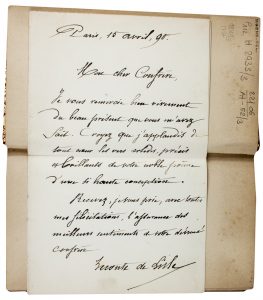 Paris, 15 avril, 90.
Mon cher Confrère,
Je vous remercie bien vivement
du beau présent que vous m'avez
fait. Croyez que j'applaudis de
tout cœur les vers solides, précis
et brillants de votre noble poème
d'une si haute conception.
Recevez, je vous prie, avec toutes
mes félicitations, l'assurance des
meilleurs sentiments de votre dévoué
confrère
Leconte de Lisle